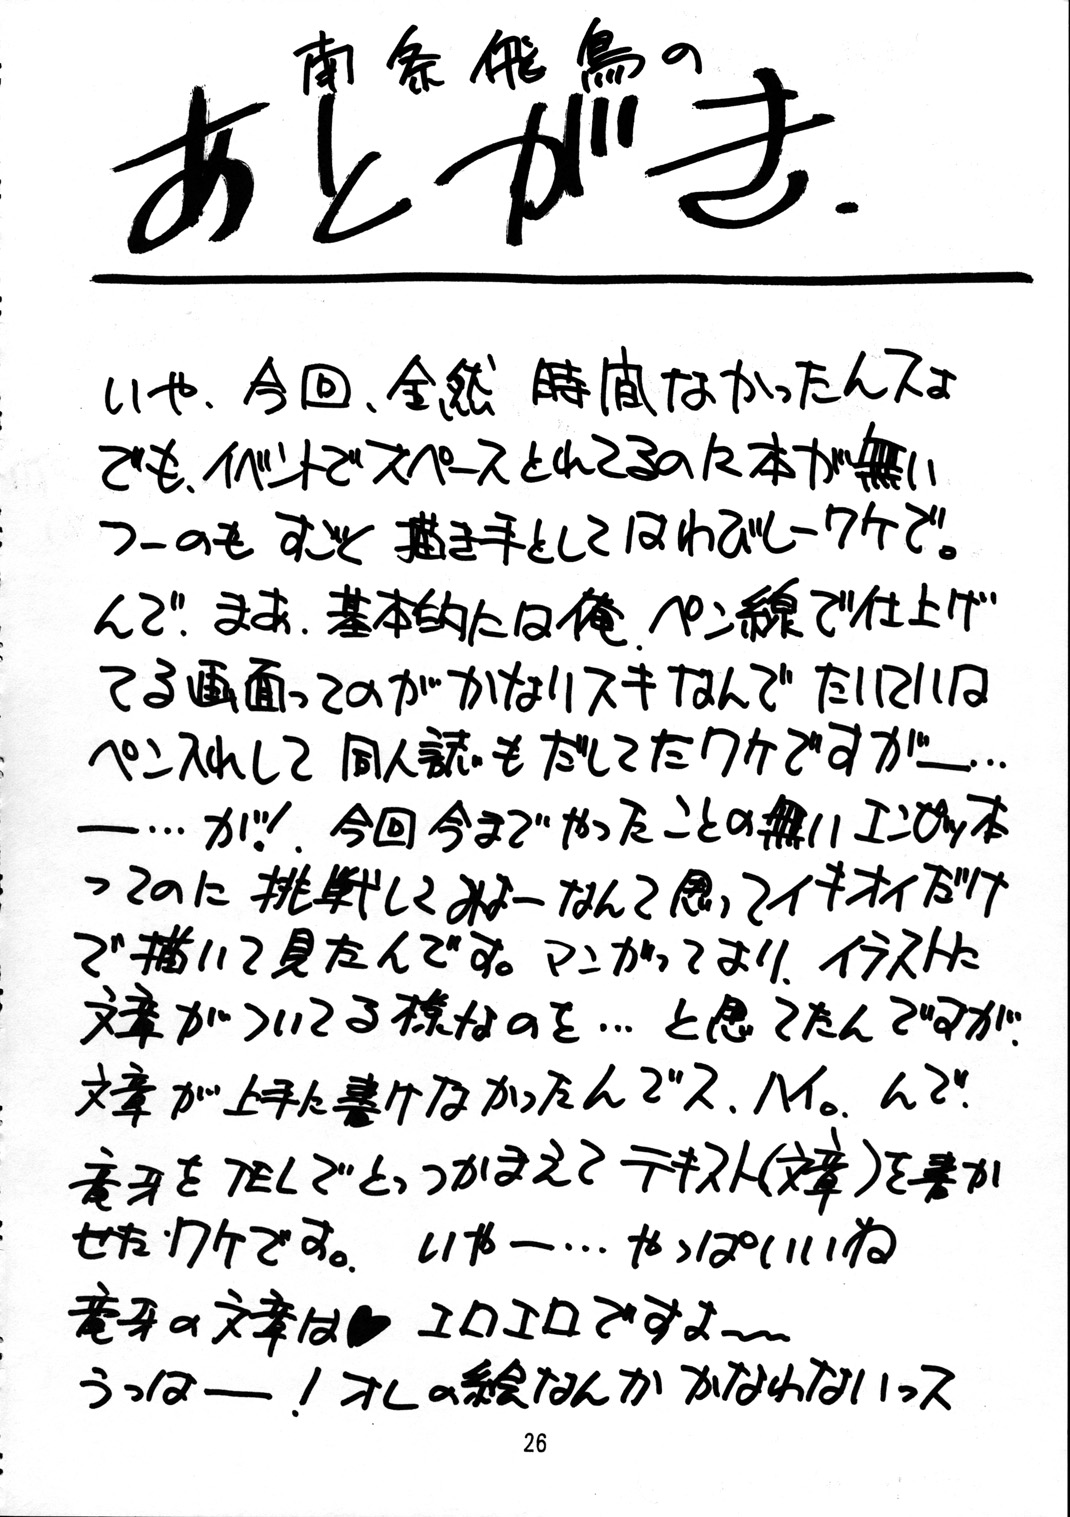 南条飛鳥の
あとがき.
いや、今回、全然 時間なかったんスよ
でも、イベントでスペースとれてるのに本が無い
つーのも すごく 描き手としてはわびしーワケで。
んで、まあ、基本的には俺、ペン線で仕上げ
てる画面ってのがかなりスキなんで たいていは
ペン入れして 同人誌もだしてたワケですがー…
ー…が!、今回今までやったことの無いエンピツ本
ってのに 挑戦してみよーなんて思ってイキオイだけ
で描いて見たんです。マンガってより、イラストに
文章がついてる様なのを…と思ってたんですが、
文章が上手に書けなかったんでス、ハイ。んで、
竜牙をTELでとっつかまえてテキスト(文章)を書か
せたワケです。 いやー…やっぱいいね
竜牙の文章は♥ エロエロですよ〜〜
うっはー!オレの絵なんか かなわないっス
26